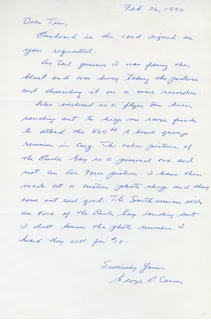 Feb. 26, 1990
Dear Tim,
Enclosed is the card signed as
you requested.
As tail gunner I was facing the
blast and was busy taking the picture
and describing it on a wire recorder
Also enclosed is a flyer Im been
sending out to help one raise funds
to attend the 509th bomb group
reunion in Aug. The color picture of
the Enola Gay is a personal one and
not an Air Force picture. I have them
made at a custom photo shop and they
come out real good. The Smithsonian sells
an 8x10 of the Enola Gay landing but
I dont know the photo number. I
heard they sell for $10.
Sincerely Yours
George R Caron